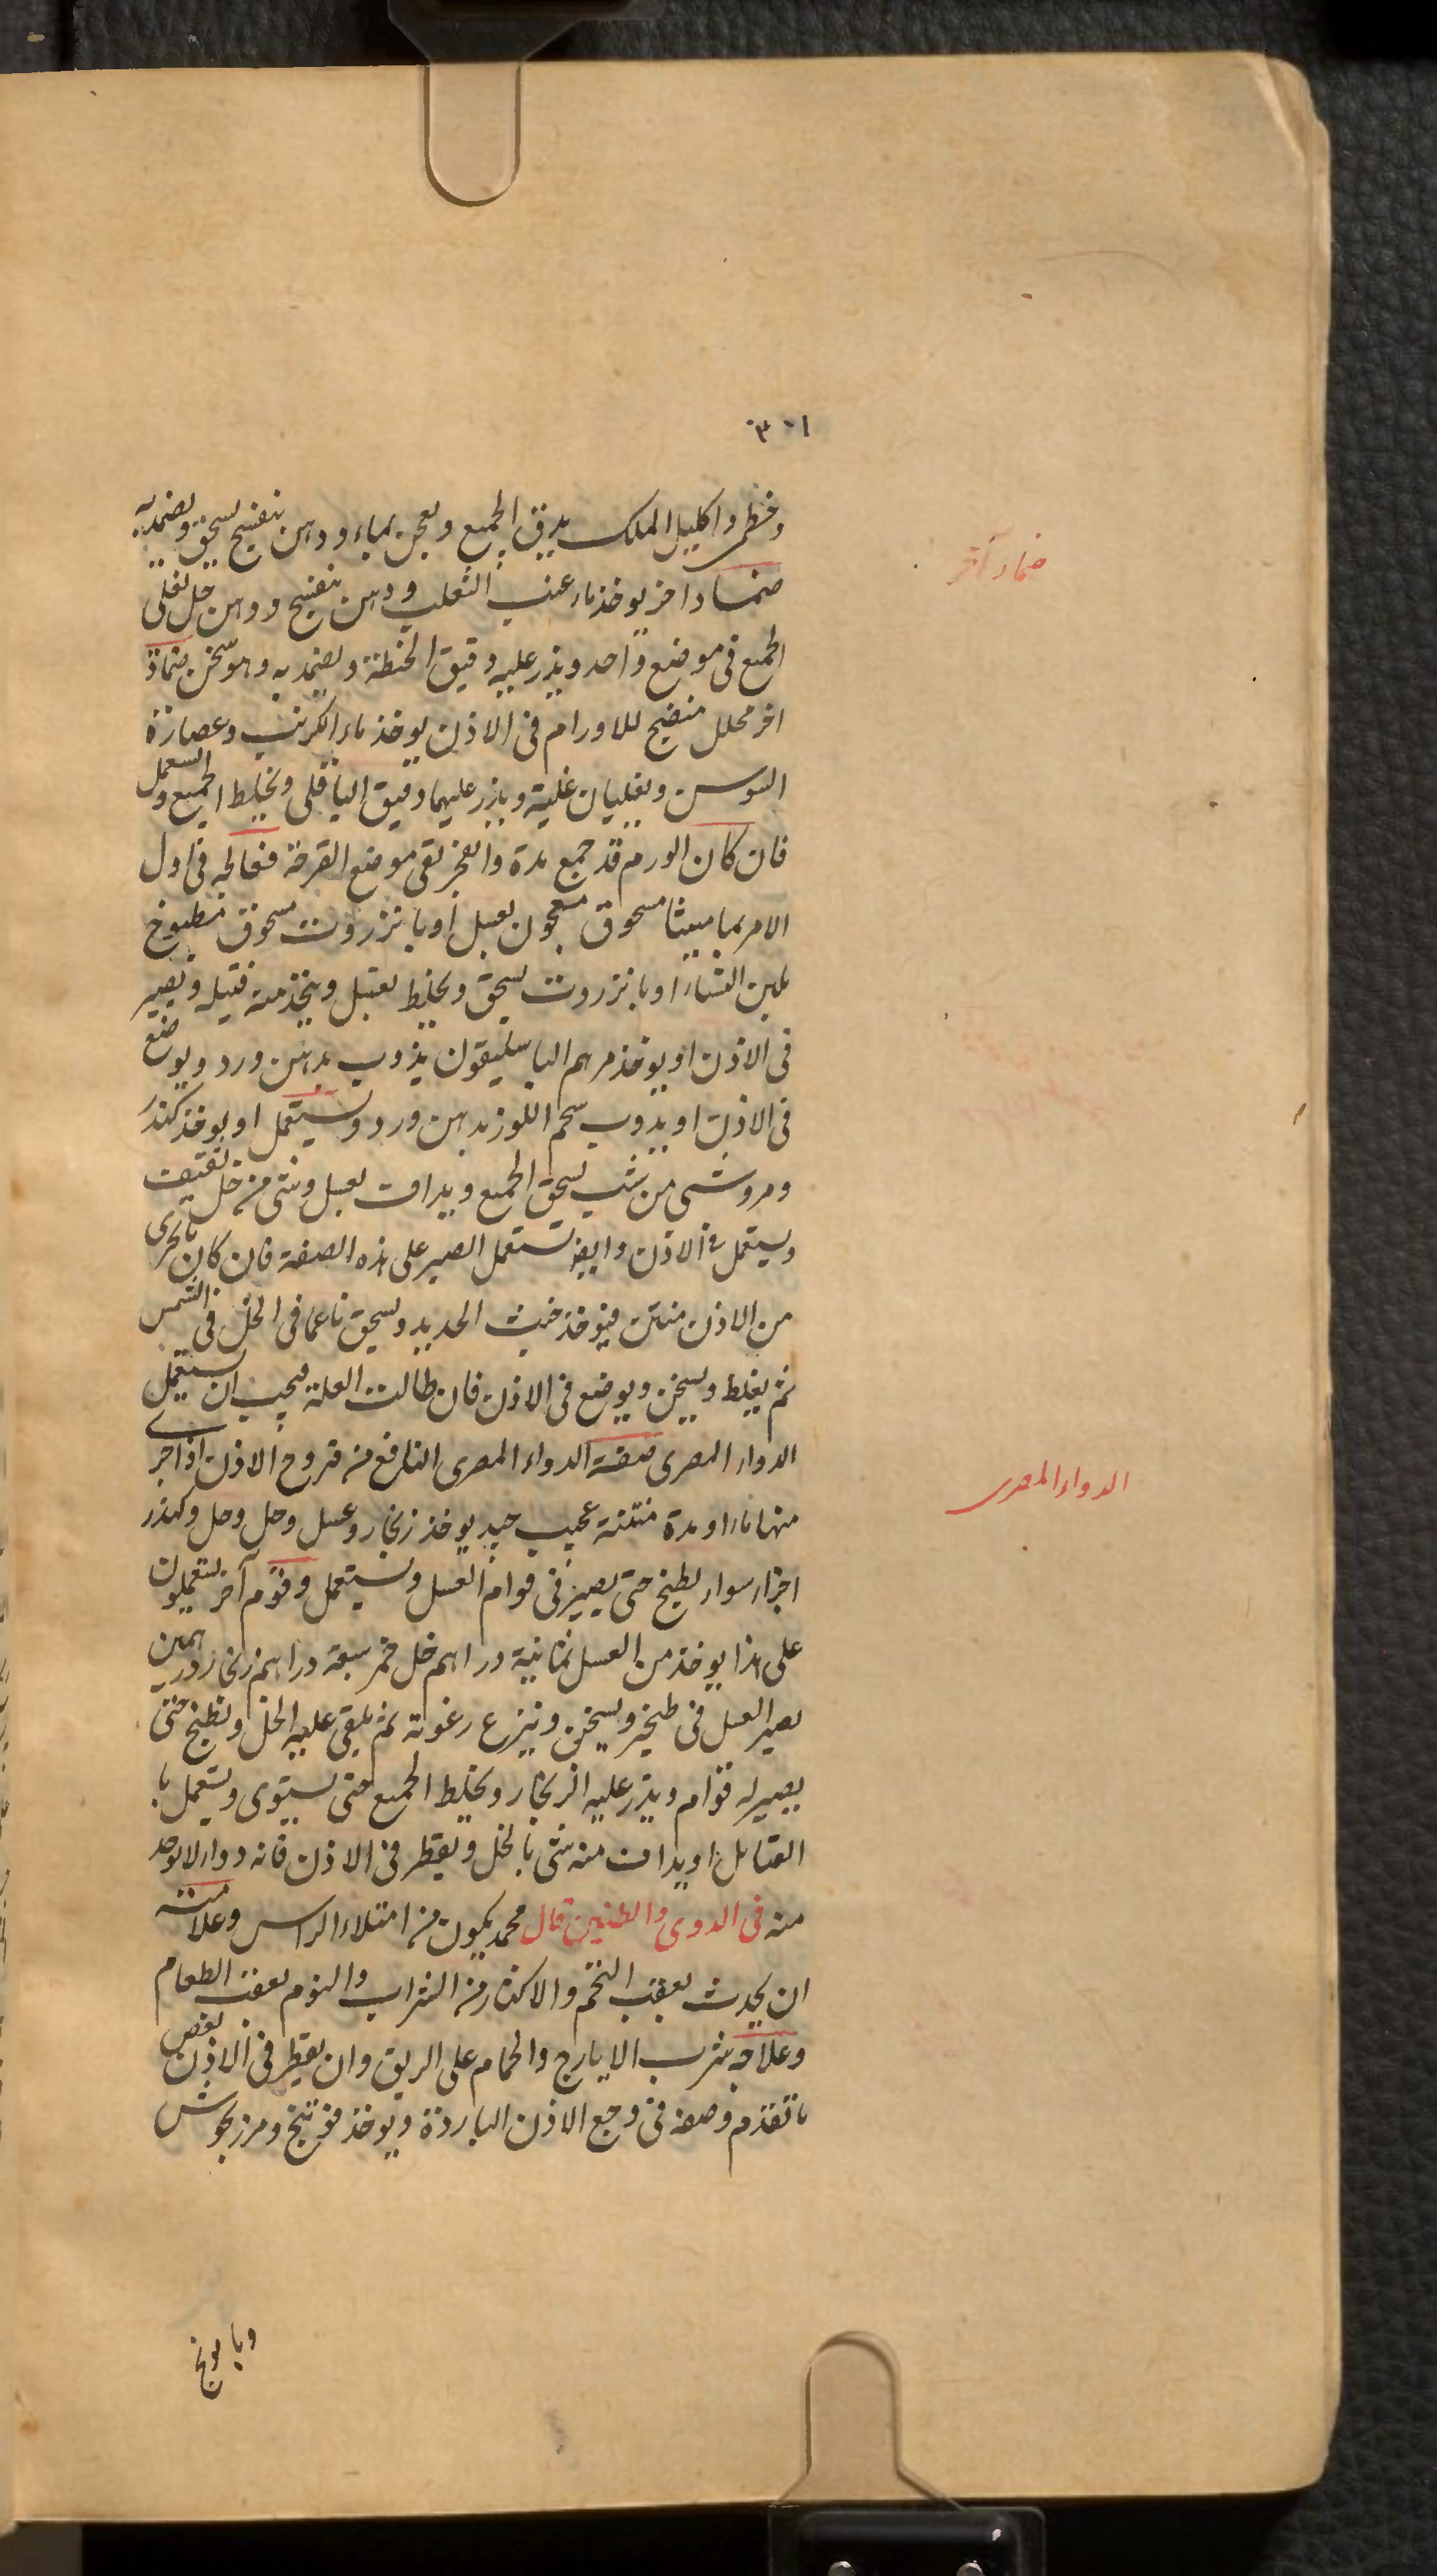 ٣٠١
وخطمى واكليل الملك يدق الجميع ويعجن بماء ودهن بنفسج يسحق ويضمد به
ضماد آخر
ضمــاد اخر يوخذ ماء عنب الثعلب ودهن بنفسج ودهن حل يغلى
الجميع فى موضع واحد ويذر عليه دقيق الحنطة ويضمد به وهو سخن ضماد
اخر محلل منضج للاورام فى الاذن يوخذ ماء الكرنب وعصارة
السوسن ويغليان غلية ويذر عليهما دقيق الباقلى ويخلط الجميع ويستعمل
فان كان الورم قد جمع مدة وانفجر نقى موضع القرحة فعالجه فى اول
الامر بماميثا مسحوق معجون بعسل او بانزروت مسحوق مطبوخ
بلبن النساء او بانزروت يسحق ويخلط بعسل ويتخذ منه فتيله ويصير
فى الاذن او يوخذ مرهم الباسليقون يذوب بدهن ورد ويوضع
فى الاذن او يذوب شحم اللوز بدهن ورد ويستعمل او يوخذ كندر
ومر وشى من شب يسحق الجميع ويداف بعسل وشى من خل ثقيف
ويستعمل فى الاذن وايضا تستعمل الصبر على هذه الصفة فان كان ما يجرى
من الاذن منتن فيوخذ خبث الحديد ويسحق ناعما فى الخل فى الشمس
ثم يغلط ويسخن ويوضع فى الاذن فان طالت العلة فيجب ان يستعمل
الدواء المصرى
الدواء المصرى صفة الدواء المصرى النافع من قروح الاذن اذا جرى
منها ماء او مدة منتنة عجيب جيد يوخذ زنجار وعسل وخل وكندر
اجزاء سواء يطبخ حتى يصير فى قوام العسل ويستعمل وقوم آخر يستعملون
على هذا يوخذ من العسل ثمانية دراهم خل خمر سبعة دراهم زنجار درهمين
يصير العسل فى طنجير ويسخن وينزع رغوته ثم يلقى عليه الخل ويطبخ حتى
يصير له قوام ويذر عليه الزنجار ويخلط الجميع حتى يستوى ويستعمل با
الفتايل او يداف منه شى بالخل ويقطر فى الاذن فانه دواء لا يوجد
منه فى الدوى والطنين قال محمد يكون من امتلاء الراس وعلامته
ان يحدث بعقب التخم والاكثار من الشراب والنوم بعقب الطعام
وعلاجه شرب الايارج والحمام على الريق وان يقطر فى الاذن بعض
ما تقدم وصفه فى وجع الاذن الباردة ويوخذ فوتنج ومرزنجوش
وبابونج